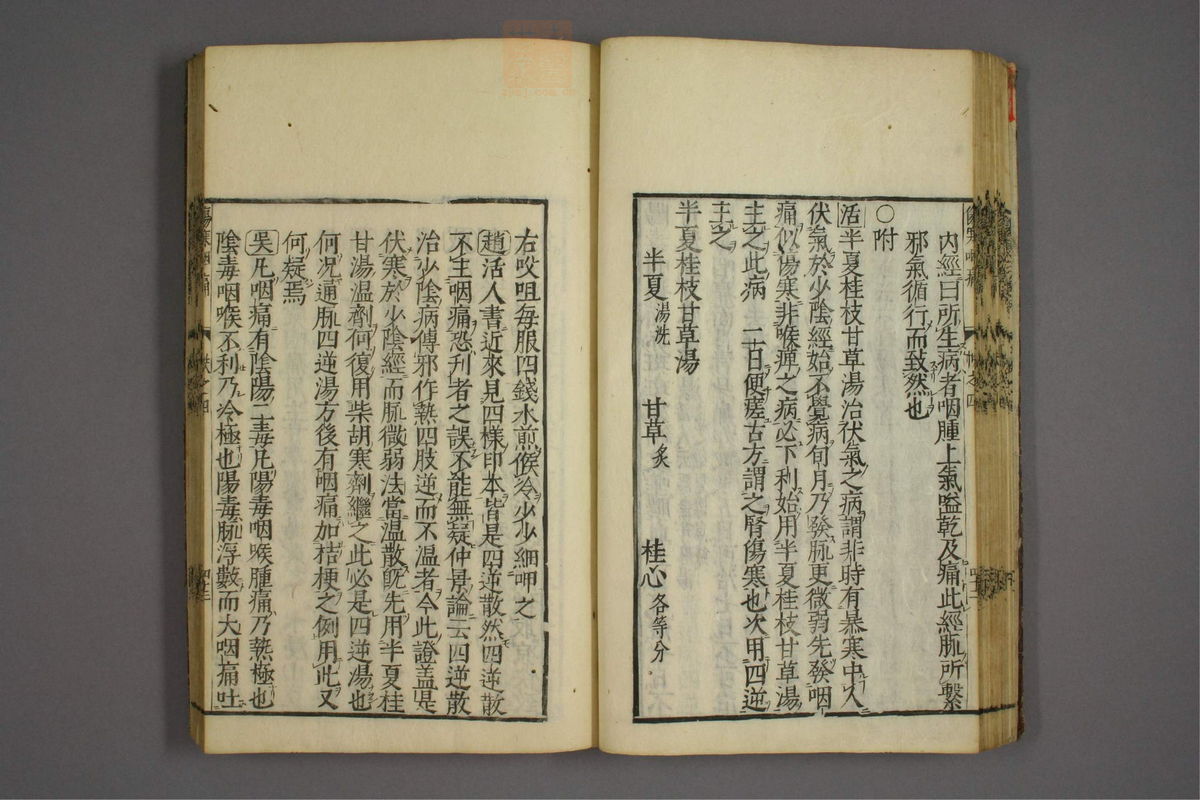 內經曰所生病者咽腫上氣嗌乾及痛此經脉所繫
邪氣循行而致然也
○附
活半夏桂枝甘草湯治伏氣之病謂非時有暴寒中人
伏氣於少陰經始不覺病旬月乃發脉更微弱先發咽
痛似傷寒非喉痺之病必下利始用半夏桂枝甘草湯
主之此病 二日便瘥古方謂之腎傷寒也次用四逆
主之
半夏桂枝甘草湯
半夏湯洗 甘草炙 桂心各等分
右㕮咀每服四錢水煎候冷少少細呷之
趙活人書近來見四樣印本皆是四逆散然四逆散
不主咽痛恐刋者之誤不能無疑仲景論云四逆散
治少陰病傳邪作熱四肢逆而不溫者今此證盖是
伏寒於少陰經而脉微弱法當溫散旣先用半夏桂
甘湯溫劑何復用柴胡寒劑繼之此必是四逆湯也
何况通脉四逆湯方後有咽痛加桔梗之例用此又
何疑焉
吳凡咽痛有陰陽二毒凡陽毒咽喉腫痛乃熱極也
陰毒咽喉不利乃冷極也陽毒脉浮數而大咽痛吐